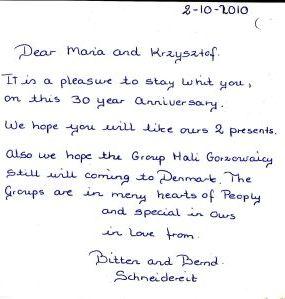 2-10-2010
Dear Maria and Krzysztof.
It is a pleasure to stay whit you,
on this 30 year anniversary.
We hope you will like ours 2 presents.
Also we hope the Group Hali Gorzowaicy
still will coming to Denmark. The
Groups are in meny hearts of Peoply
and special in ows
in Love from.
Bitten and Bernd
Schneidereit